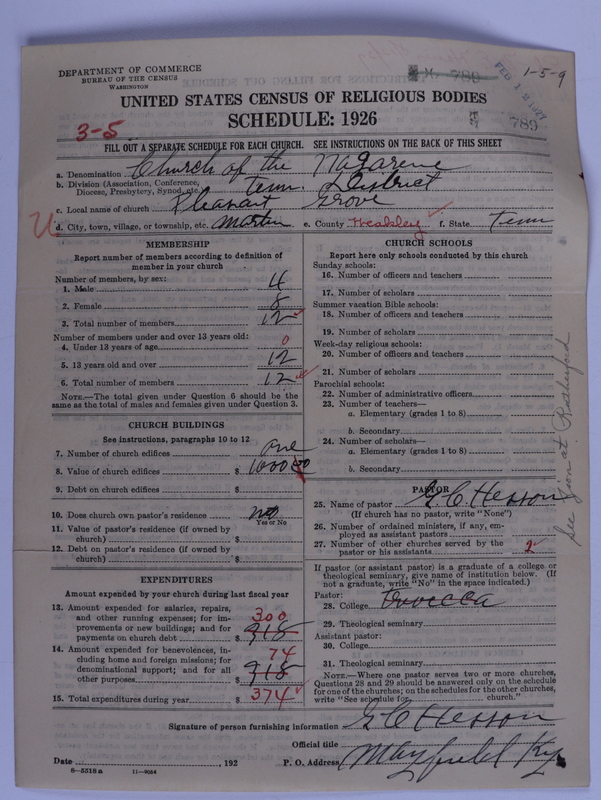 DEPARTMENT OF COMMERCE
BUREAU OF THE CENSUS
WASHINGTON
789
FEB 12 1927
1-5-9
UNITED STATES CENSUS OF RELIGIOUS BODIES
SCHEDULE: 1926
789
3-5
FILL OUT A SEPARATE SCHEDULE FOR EACH CHURCH. SEE INSTRUCTIONS ON THE BACK OF THIS SHEET
a. Denomination Church of the Nazarene
b. Division (Association, Conference, Diocese, Presbytery, Synod, etc.) Tenn. District
c. Local name of church Pleasant Grove
d. City, town, village, or township, etc. Martin e. County Weakley f. State Tenn
MEMBERSHIP
Report number of members according to definition of
member in your church
Number of members, by sex:
1. Male 4
2. Female 8
3. Total number of members 12
Number of members under and over 13 years old:
4. Under 13 years of age 0
5. 13 years old and over 12
6. Total number of members 12
NOTE.—The total given under Question 6 should be the
same as the total of males and females given under Question 3.
CHURCH BUILDINGS
See instructions, paragraphs 10 to 12
7. Number of church edifices one
8. Value of church edifices $ 1000 00
9. Debt on church edifices $
10. Does church own pastor's residence no
Yes or No
11. Value of pastor's residence (if owned by
church) $
12. Debt on pastor's residence (if owned by
church) $
EXPENDITURES
Amount expended by your church during last fiscal year
13. Amount expended for salaries, repairs,
and other running expenses; for im-
provements or new buildings; and for
payments on church debt $ 300
14. Amount expended for benevolences, in-
cluding home and foreign missions; for
denominational support; and for all
other purposes $ 74
15. Total expenditures during year $ 374
CHURCH SCHOOLS
Report here only schools conducted by this church
Sunday schools:
16. Number of officers and teachers
17. Number of scholars
Summer vacation Bible schools:
18. Number of officers and teachers
19. Number of scholars
Week-day religious schools:
20. Number of officers and teachers
21. Number of scholars
Parochial schools:
22. Number of administrative officers
23. Number of teachers—
a. Elementary (grades 1 to 8)
b. Secondary
24. Number of scholars—
a. Elementary (grades 1 to 8)
b. Secondary
PASTOR
25. Name of pastor E. C. Hesson
(If church has no pastor, write "None")
26. Number of ordained ministers, if any, em-
ployed as assistant pastors
27. Number of other churches served by the
pastor or his assistants 2
If pastor (or assistant pastor) is a graduate of a college or
theological seminary, give name of institution below. (If
not a graduate, write "No" in the space indicated.)
Pastor:
28. College
29. Theological seminary
Assistant pastor:
30. College
31. Theological seminary
NOTE.—Where one pastor serves two or more churches,
Questions 28 and 29 should be answered only on the schedule
for one of the churches; on the schedules for the other churches,
write "See schedule for church."
See at Rutherford
Signature of person furnishing information E C Hesson
Official title
Date , 192 P. O. Address Mayfield Ky
8—5318 a 11—9054